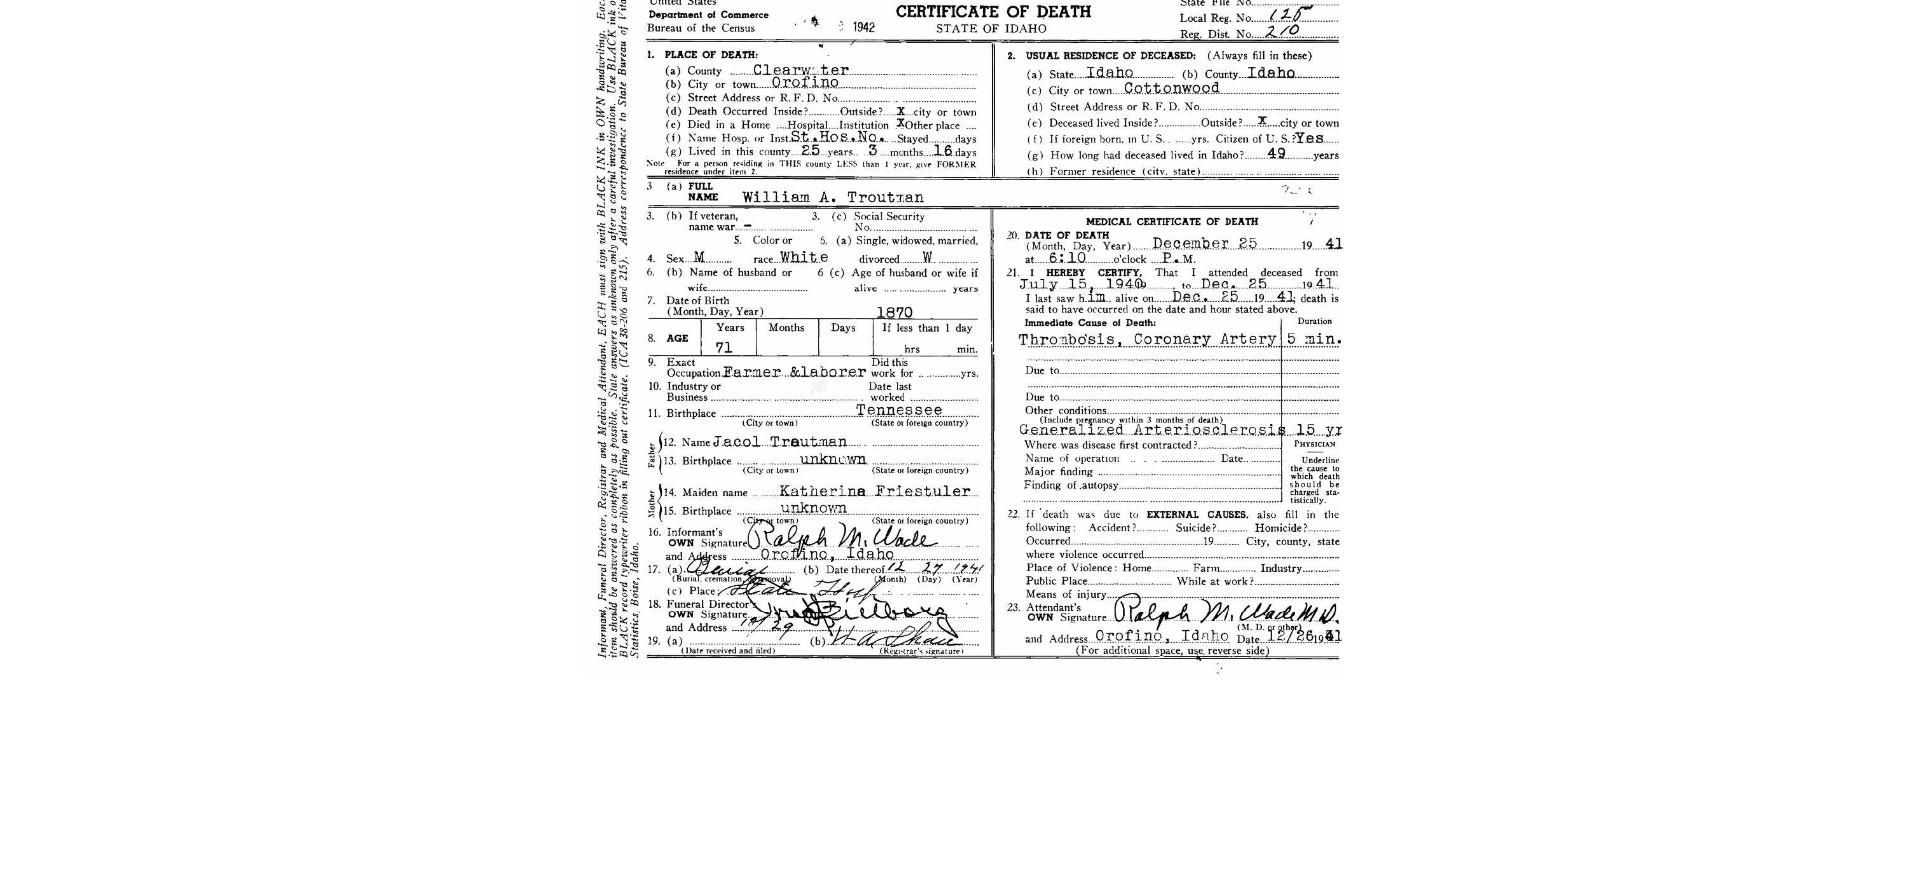 United States
Department of Commerce
Bureau of the Census
1942
CERTIFICATE OF DEATH
STATE OF IDAHO
State File No.
Local Reg. No. 125
Reg. Dist. No. 210
Informant, Funeral Director, Registrar and Medical Attendant, EACH must sign with BLACK INK in OWN handwriting. Each
item should be answered as completely as possible. State answers as unknown only after a careful investigation. Use BLACK ink or
BLACK record typewriter ribbon in filling out certificate. (ICA 38-206 and 215). Address correspondence to State Bureau of Vital
Statistics, Boise, Idaho.
1. PLACE OF DEATH:
(a) County Clearwater
(b) City or town Orofino
(c) Street Address or R. F. D. No.
(d) Death Occurred Inside? Outside? X city or town
(e) Died in a Home Hospital Institution X Other place
(f) Name Hosp. or Inst. St.Hos.No. Stayed days
(g) Lived in this county 25 years 3 months 16 days
Note For a person residing in THIS county LESS than 1 year, give FORMER
residence under item 2.
2. USUAL RESIDENCE OF DECEASED: (Always fill in these)
(a) State Idaho (b) County Idaho
(c) City or town Cottonwood
(d) Street Address or R. F. D. No.
(e) Deceased lived Inside? Outside? X city or town
(f) If foreign born, in U. S. yrs. Citizen of U. S.? Yes
(g) How long had deceased lived in Idaho? 49 years
(h) Former residence (city, state)
3 (a) FULL
NAME William A. Troutman
3. (b) If veteran, 3. (c) Social Security
name war - No.
5. Color or 6. (a) Single, widowed, married,
4. Sex M race White divorced W
6. (b) Name of husband or 6 (c) Age of husband or wife if
wife alive years
7. Date of Birth
(Month, Day, Year) 1870
8. AGE Years Months Days If less than 1 day
71 hrs min.
9. Exact Did this
Occupation Farmer &laborer work for yrs.
10. Industry or Date last
Business worked
11. Birthplace Tennessee
(City or town) (State or foreign country)
Father
12. Name Jacol Troutman
13. Birthplace unknown
(City or town) (State or foreign country)
Mother
14. Maiden name Katherina Friestuler
15. Birthplace unknown
(City or town) (State or foreign country)
16. Informant's
OWN Signature Ralph M. Wade
and Address Orofino, Idaho
17. (a) Burial (b) Date thereof 12 27 1941
(Burial, cremation, removal) (Month) (Day) (Year)
(c) Place State Hosp
18. Funeral Director's
OWN Signature
and Address
12/29
19. (a) (b)
(Date received and filed) (Registrar's signature)
MEDICAL CERTIFICATE OF DEATH
20. DATE OF DEATH
(Month, Day, Year) December 25 19 41
at 6:10 o'clock P. M.
21. I HEREBY CERTIFY, That I attended deceased from
July 15, 1940 to Dec. 25 1941
I last saw him alive on Dec. 25 19 41; death is
said to have occurred on the date and hour stated above.
Immediate Cause of Death: Duration
Thrombosis, Coronary Artery 5 min.
Due to
Due to
Other conditions
(Include pregnancy within 3 months of death)
Generalized Arteriosclerosis 15 yr
Where was disease first contracted?
Name of operation Date
Major finding
Finding of autopsy
PHYSICIAN
Underline
the cause to
which death
should be
charged sta-
tistically.
22. If death was due to EXTERNAL CAUSES, also fill in the
following: Accident? Suicide? Homicide?
Occurred 19 City, county, state
where violence occurred
Place of Violence: Home Farm Industry
Public Place While at work?
Means of injury
23. Attendant's
OWN Signature Ralph M. Wade M.D.
(M. D. or other)
and Address Orofino, Idaho Date 12/26 1941
(For additional space, use reverse side)